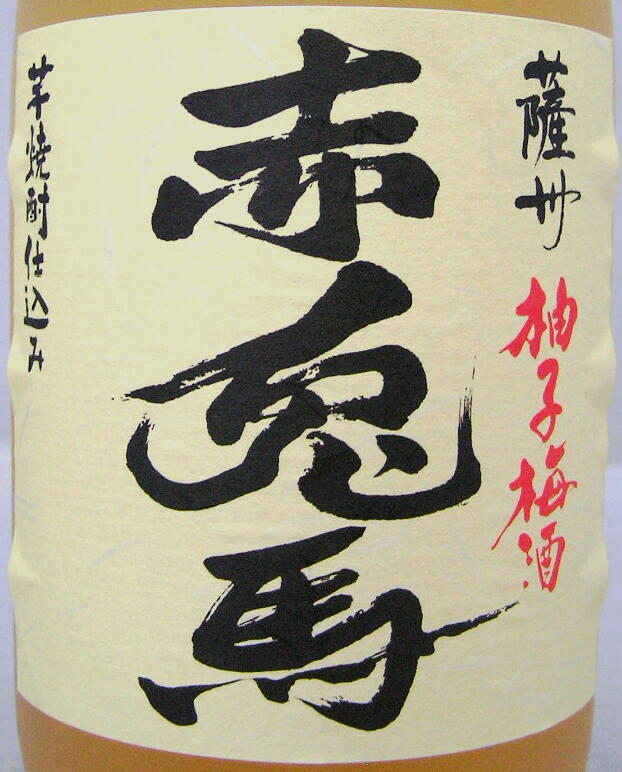 薩州
柚子梅酒
赤兎馬
芋焼酎仕込み